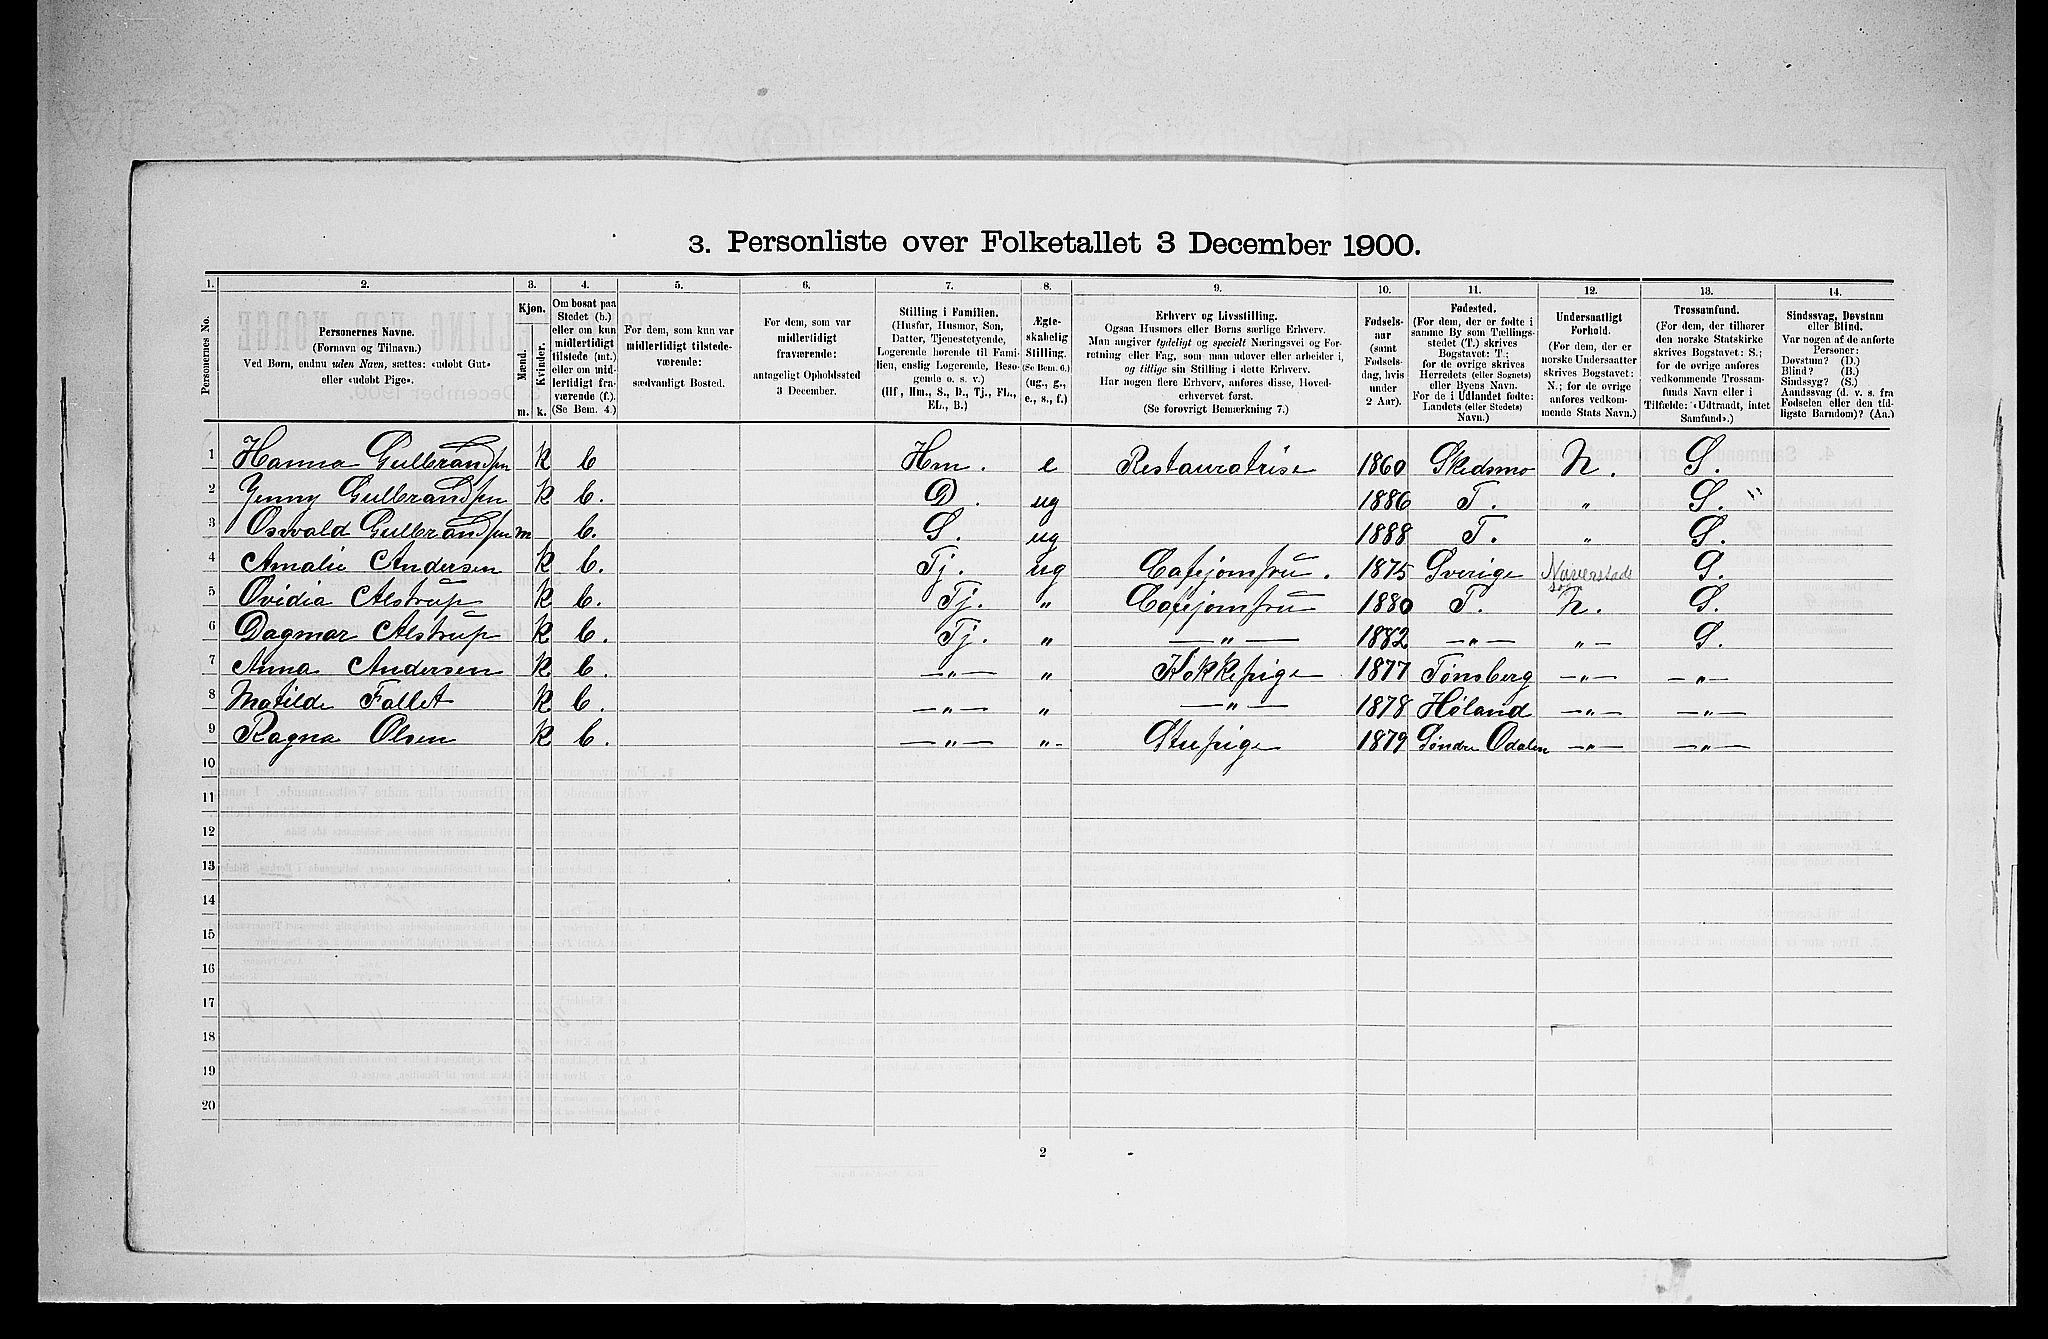 3. Personliste over Folketallet 3 December 1900.
1. 2. 3. 4. 5. 6. 7. 8. 9. 10. 11. 12. 13. 14.
Personernes No.
Personernes Navne.
(Fornavn og Tilnavn.)
Ved Børn, endnu uden Navn, sættes: «udøbt Gut»
eller «udøbt Pige».
Kjøn.
Mænd.
Kvinder.
m. k.
Om bosat paa
Stedet (b.)
eller om kun
midlertidigt
tilstede (mt.)
eller om mid-
lertidigt fra-
værende (f.).
(Se Bem. 4.)
For dem, som kun var
midlertidigt tilstede-
værende:
sædvanligt Bosted.
For dem, som var
midlertidigt
fraværende:
antageligt Opholdssted
3 December.
Stilling i Familien.
(Husfar, Husmor, Søn,
Datter, Tjenestetyende,
Logerende hørende til Fami-
lien, enslig Logerende, Beso-
gende o. s. v.)
(Hf., Hm., S., D., Tj., FL.,
EL., B.)
Ægte-
skabelig
Stilling.
(Se Bem. 6.)
(ug., g.,
e., s., f.)
Erhverv og Livsstilling.
Ogsaa Husmors eller Børns særlige Erhverv.
Man angiver tydeligt og specielt Næringsvei og For-
retning eller Fag, som man udover eller arbeider i,
og tillige sin Stilling i dette Erhverv.
Har nogen flere Erhverv, anføres disse, Hoved-
erhvervet først.
(Se forøvrigt Bemærkning 7.)
Fødsels-
aar
(samt
Fødsels-
dag, hvis
under
2 Aar).
Fødested.
(For dem, der er fødte i
samme By som Tællings-
stedet (T.) skrives
Bogstavet: T.;
for de øvrige skrives
Herredets (eller Sognets)
eller Byens Navn.
For de i Udlandet fødte:
Landets (eller Stedets)
Navn.)
Undersaatligt
Forhold.
(For dem, der er
norske Undersaatter
skrives Bogstavet:
N.; for de øvrige
anføres vedkom-
mende Stats Navn.)
Trossamfund.
(For dem, der tilhører
den norske Statskirke
skrives Bogstavet: S.;
for de øvrige anføres
vedkommende Trossam-
funds Navn eller i
Tilfælde: «Udtraadt, intet
Samfund».)
Sindssvag, Døvstum
eller Blind.
Var nogen af de anførte
Personer:
Døvstum? (D.)
Blind? (B.)
Sindssyg? (S.)
Aandssvag (d. v. s. fra
Fødselen eller den tid-
ligste Barndom)? (Aa.)
1 Hanna Gulbrandsen k b Hm. e Restauratrise 1860 Skedsmo N. S.
2 Jenny Gulbrandsen k b. D. ug 1886 T. " S. "
3 Osvald Gulbrandsen m b. S. ug 1888 T. " S.
4 Amalie Andersen k b. Tj. ug Cafejomfru. 1875 Sverige S.
5 Ovidia Alstrup k b. Tj. " Cafejomfru 1880 T. N. S.
6 Dagmar Alstrup k b. Tj. " —"— 1882 —"— "— S.
7 Anna Andersen k b. —"— " Kokkepige 1877 Tønsberg —"— —"—
8 Matilde Fallet k b. —"— " —"— 1878 Høland —"— —"—
9 Ragna Olsen k b. —"— "- Stupige 1879 Søndre Odalen —"— —"—
10
11
12
13
14
15
16
17
18
19
20
2